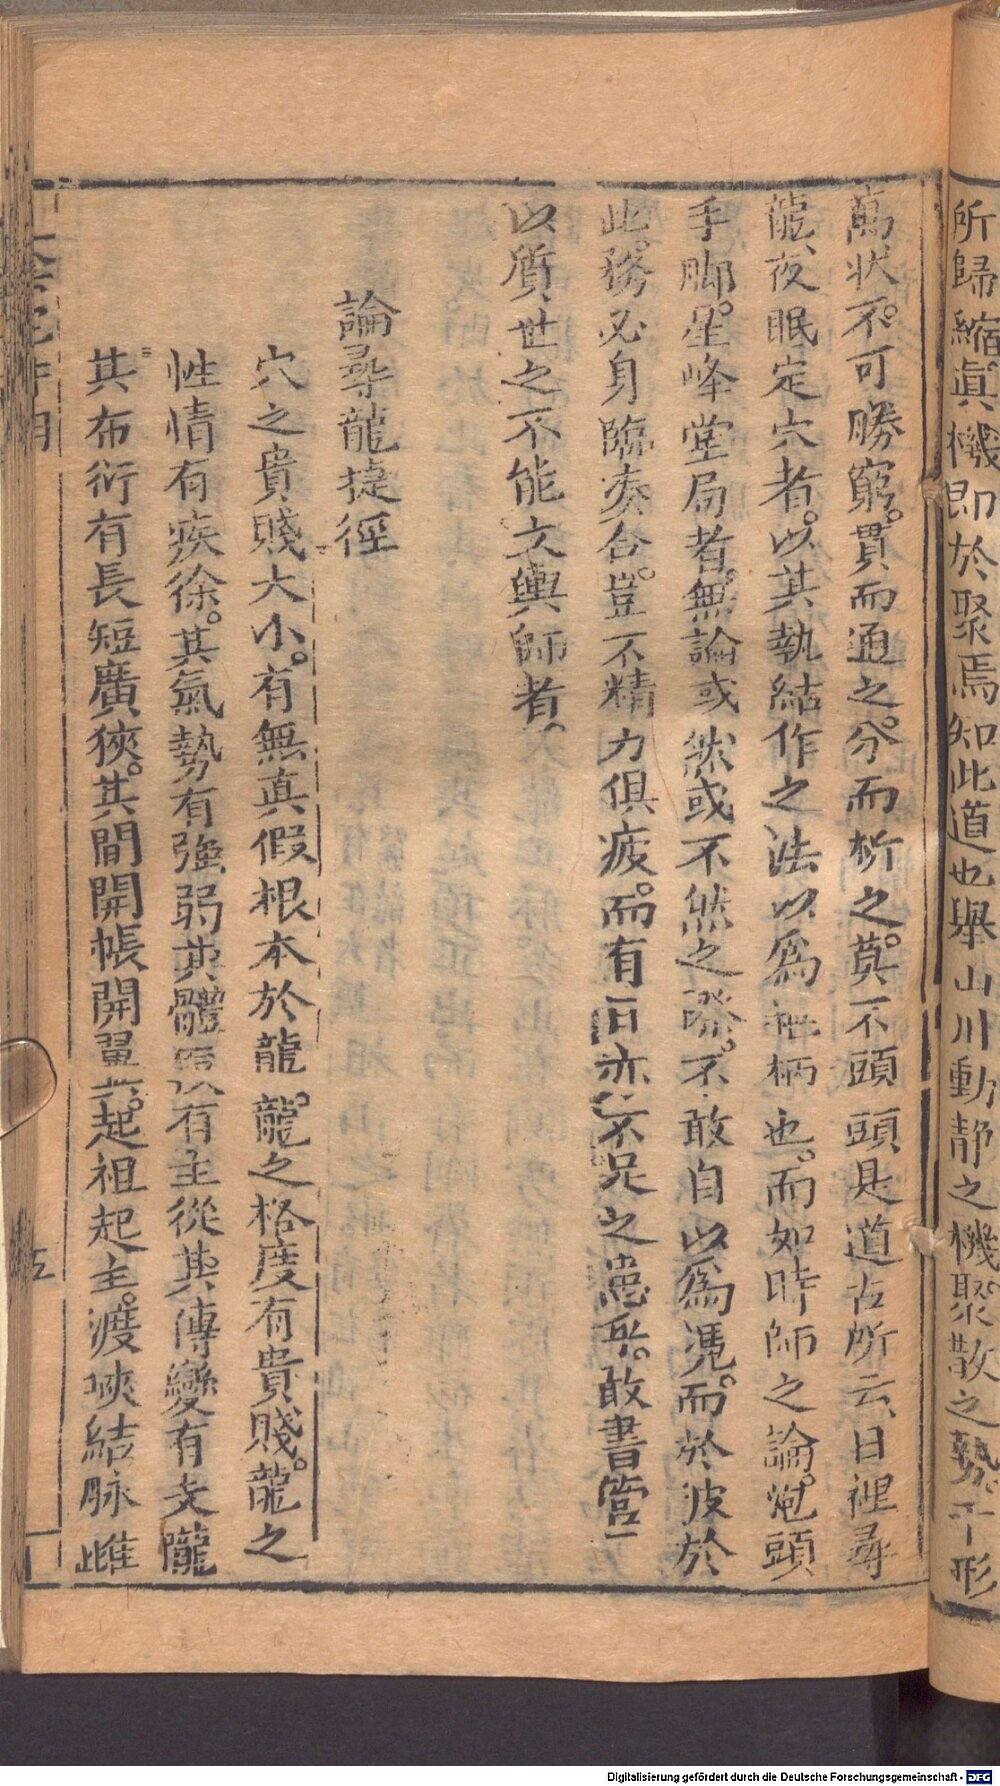 所歸縮眞機即於聚焉知此道也舉山川動靜之機聚散之勢千形
萬狀不可勝窮。貫而通之。分而析之。莫不頭頭是道古所云、日裡尋
龍、夜眠定穴者。以其執結作之法以爲柄也。而如時師之論。炮頭
手脚。星峰堂局者。無論或然或不然之際。不敢自以爲凴。而於彼於
此。務必身臨湊合。豈不精力俱疲。而有目亦不足之患乎。敢書管
以質世之不能文輿師者。
論尋龍捷徑
穴之貴賤大小。有無真假根本於龍。龍之格度有貴賤。龍之
性情有疾徐。其氣勢有強弱其體有主從其傳變有支隴
其布衍有長短廣狹。其間開帳開翼共。起祖起主。渡峽結脉雌
五
Digitalisierung gefördert durch die Deutsche Forschungsgemeinschaft - DFG